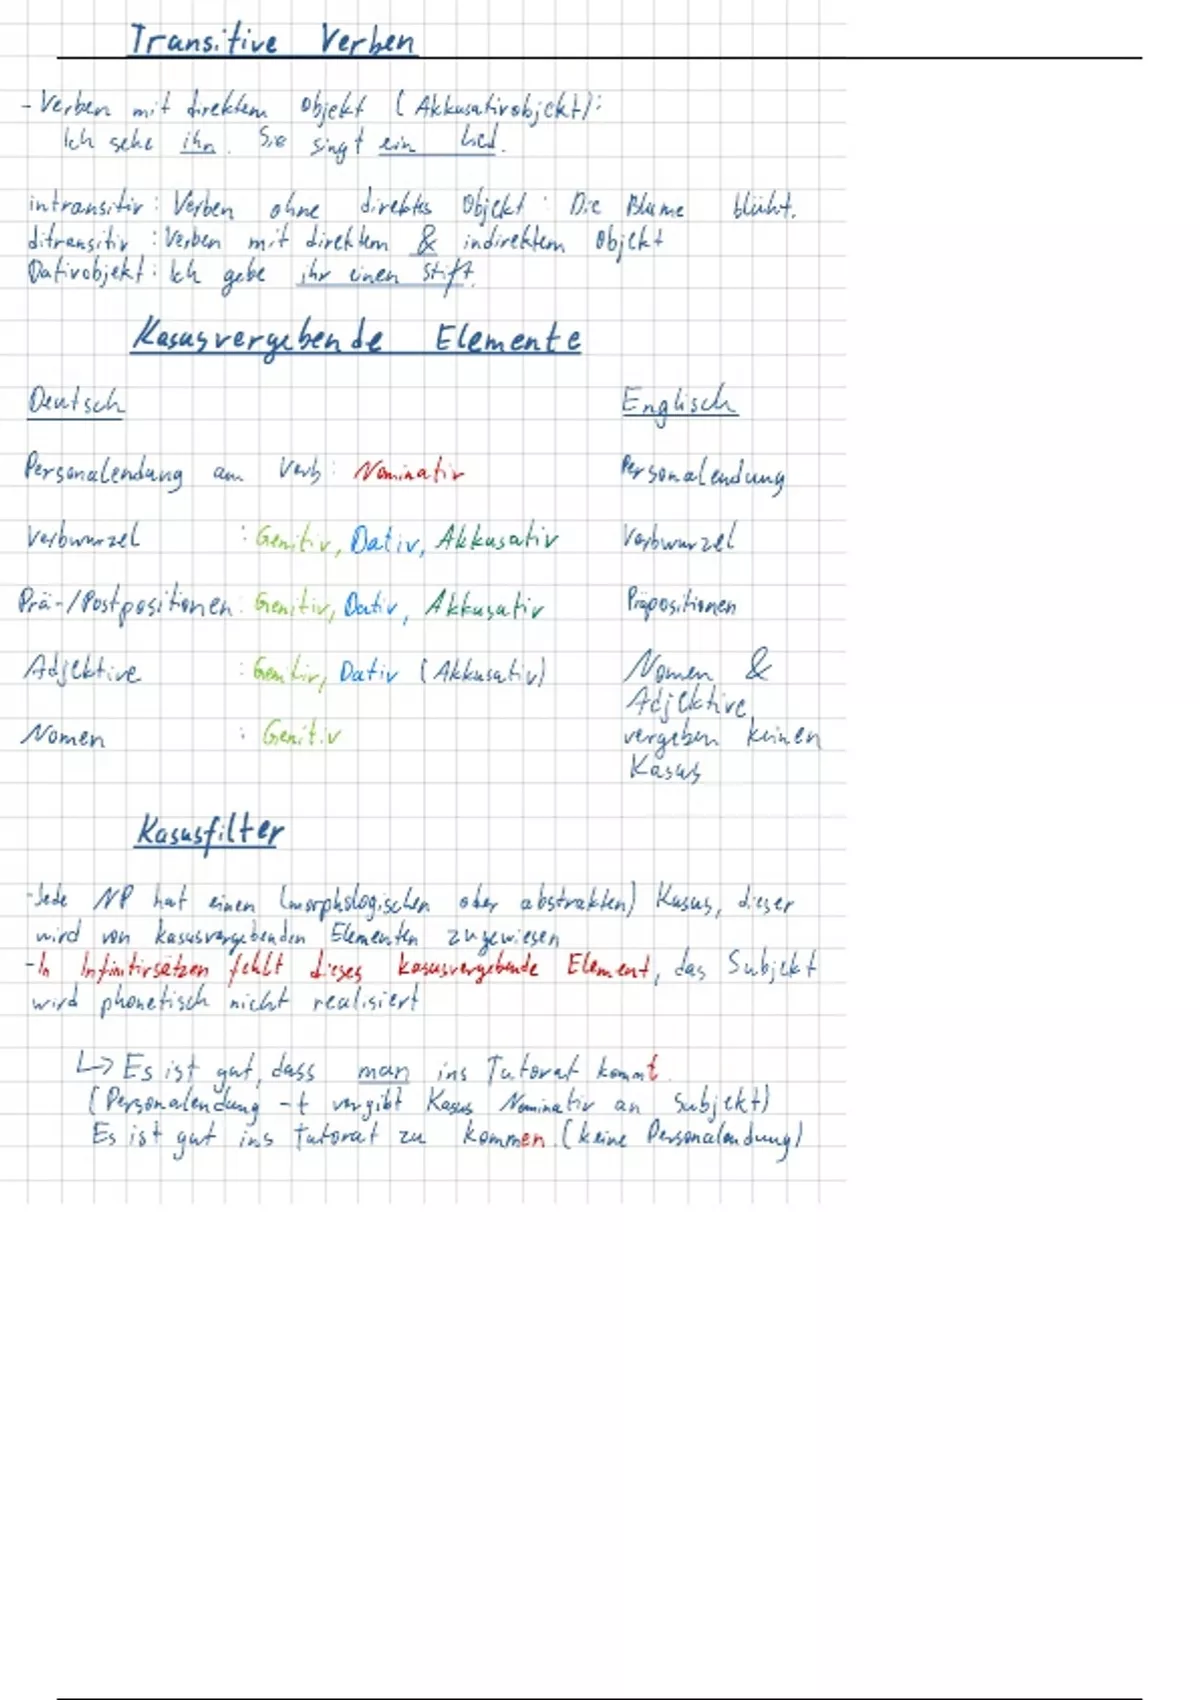 Transitive Verben
- Verben mit direktem Objekt (Akkusativobjekt):
Ich sehe ihn. Sie singt ein Lied.
intransitiv: Verben ohne direktes Objekt: Die Blume blüht.
ditransitiv: Verben mit direktem & indirektem Objekt
Dativobjekt: Ich gebe ihr einen Stift.
Kasusvergebende Elemente
Deutsch Englisch
Personalendung am Verb: Nominativ Personalendung
Verbwurzel : Genitiv, Dativ, Akkusativ Verbwurzel
Prä-/Postpositionen: Genitiv, Dativ, Akkusativ Präpositionen
Adjektive : Genitiv, Dativ (Akkusativ) Nomen &
Adjektive
Nomen : Genitiv vergeben keinen
Kasus
Kasusfilter
- Jede NP hat einen (morphologischen oder abstrakten) Kasus, dieser
wird von kasusvergebenden Elementen zugewiesen
- In Infinitivsätzen fehlt dieses kasusvergebende Element, das Subjekt
wird phonetisch nicht realisiert
↳ Es ist gut, dass man ins Tutorat kommt.
(Personalendung -t vergibt Kasus Nominativ an Subjekt)
Es ist gut ins Tutorat zu kommen. (keine Personalendung)